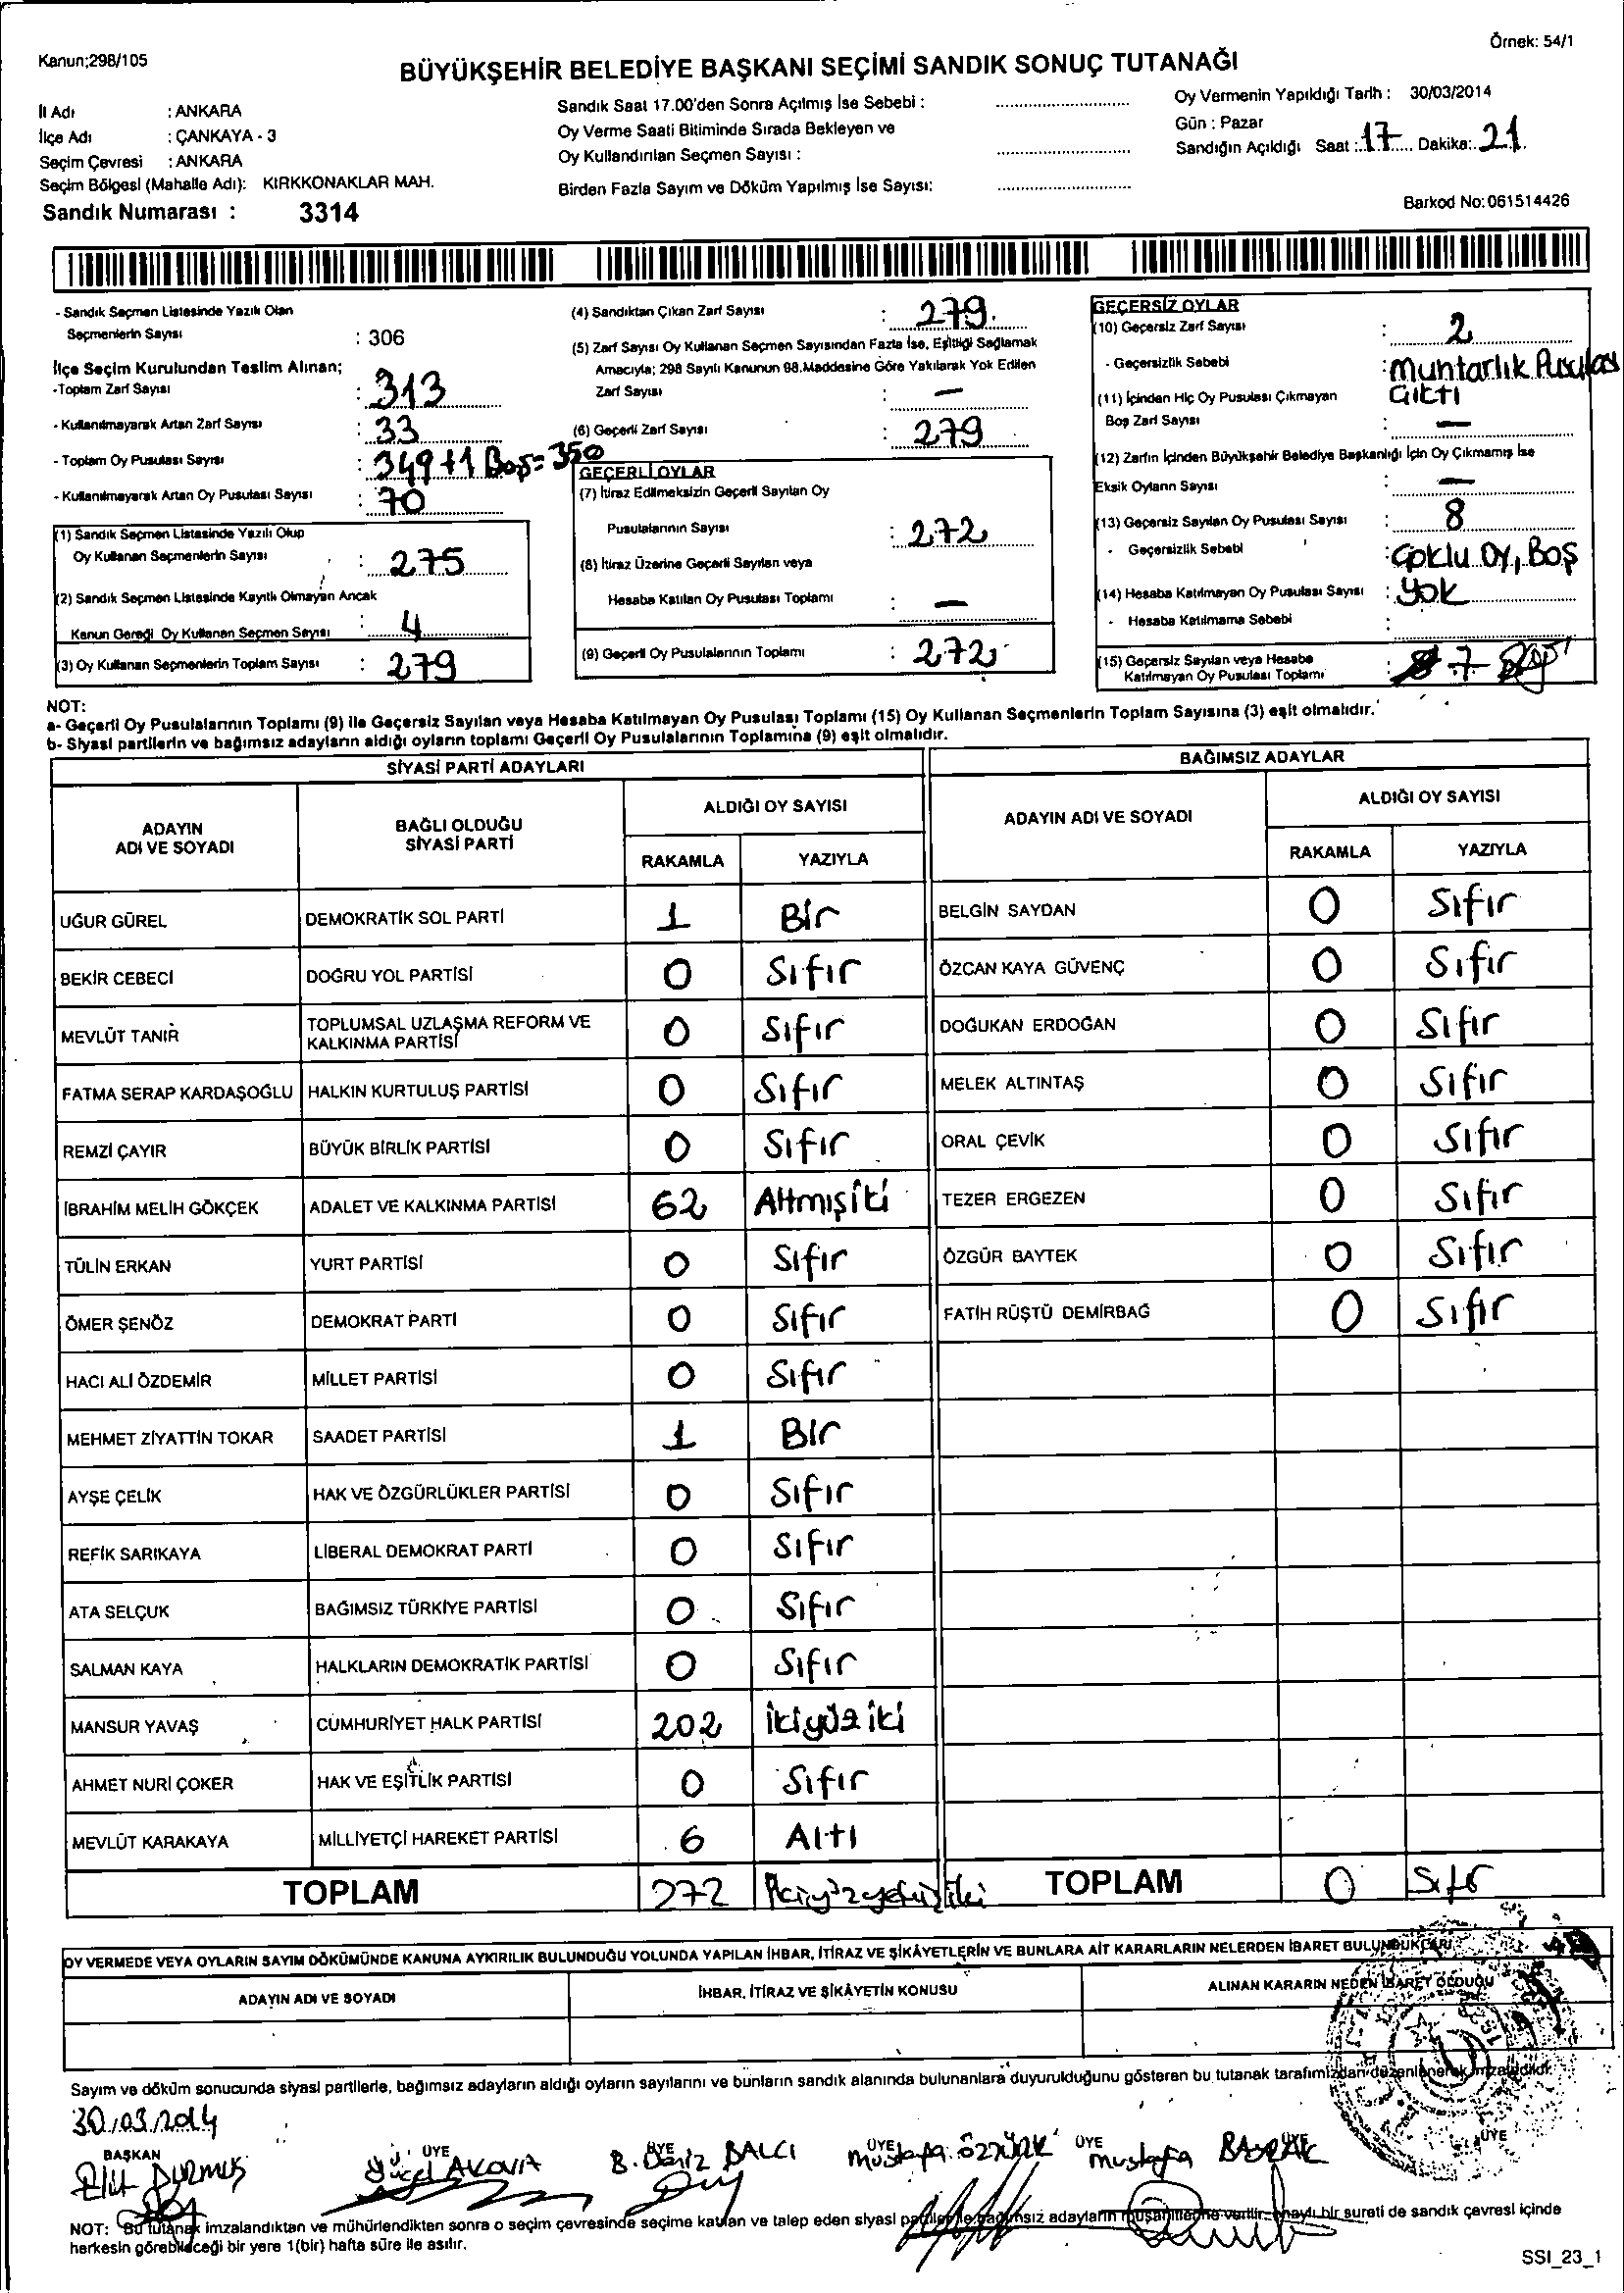 Örnek: 54/1
Kanun;298/105
BÜYÜKŞEHİR BELEDİYE BAŞKANI SEÇİMİ SANDIK SONUÇ TUTANAĞI
İl Adı : ANKARA
İlçe Adı : ÇANKAYA - 3
Seçim Çevresi : ANKARA
Seçim Bölgesi (Mahalle Adı): KIRKKONAKLAR MAH.
Sandık Numarası : 3314
Sandık Saat 17.00'den Sonra Açılmış İse Sebebi :
Oy Verme Saati Bitiminde Sırada Bekleyen ve
Oy Kullandırılan Seçmen Sayısı :
Birden Fazla Sayım ve Döküm Yapılmış İse Sayısı:
Oy Vermenin Yapıldığı Tarih : 30/03/2014
Gün : Pazar
Sandığın Açıldığı Saat : 17 Dakika: 21
Barkod No: 061514426
- Sandık Seçmen Listesinde Yazılı Olan
Seçmenlerin Sayısı : 306
İlçe Seçim Kurulundan Teslim Alınan;
-Toplam Zarf Sayısı : 313
- Kullanılmayarak Artan Zarf Sayısı : 33
- Toplam Oy Pusulası Sayısı : 349+1 Boş=350
- Kullanılmayarak Artan Oy Pusulası Sayısı : 70
(1) Sandık Seçmen Listesinde Yazılı Olup
Oy Kullanan Seçmenlerin Sayısı : 275
(2) Sandık Seçmen Listesinde Kayıtlı Olmayan Ancak
Kanun Gereği Oy Kullanan Seçmen Sayısı : 4
(3) Oy Kullanan Seçmenlerin Toplam Sayısı : 279
(4) Sandıktan Çıkan Zarf Sayısı : 279
(5) Zarf Sayısı Oy Kullanan Seçmen Sayısından Fazla İse, Eşitliği Sağlamak
Amacıyla; 298 Sayılı Kanunun 98.Maddesine Göre Yakılarak Yok Edilen
Zarf Sayısı : —
(6) Geçerli Zarf Sayısı : 279
GEÇERLİ OYLAR
(7) İtiraz Edilmeksizin Geçerli Sayılan Oy
Pusulalarının Sayısı : 272
(8) İtiraz Üzerine Geçerli Sayılan veya
Hesaba Katılan Oy Pusulası Toplamı : —
(9) Geçerli Oy Pusulalarının Toplamı : 272
GEÇERSİZ OYLAR
(10) Geçersiz Zarf Sayısı : 2
- Geçersizlik Sebebi : Muhtarlık Pusulası
Çıktı
(11) İçinden Hiç Oy Pusulası Çıkmayan
Boş Zarf Sayısı : —
(12) Zarfın İçinden Büyükşehir Belediye Başkanlığı İçin Oy Çıkmamış İse
Eksik Oyların Sayısı : —
(13) Geçersiz Sayılan Oy Pusulası Sayısı : 8
- Geçersizlik Sebebi : Çoklu Oy, Boş
(14) Hesaba Katılmayan Oy Pusulası Sayısı : Yok
- Hesaba Katılmama Sebebi :
(15) Geçersiz Sayılan veya Hesaba
Katılmayan Oy Pusulası Toplamı : 7
NOT:
a- Geçerli Oy Pusulalarının Toplamı (9) ile Geçersiz Sayılan veya Hesaba Katılmayan Oy Pusulası Toplamı (15) Oy Kullanan Seçmenlerin Toplam Sayısına (3) eşit olmalıdır.
b- Siyasi partilerin ve bağımsız adayların aldığı oyların toplamı Geçerli Oy Pusulalarının Toplamına (9) eşit olmalıdır.
SİYASİ PARTİ ADAYLARI
ADAYIN ADI VE SOYADI
BAĞLI OLDUĞU SİYASİ PARTİ
ALDIĞI OY SAYISI
RAKAMLA YAZIYLA
UĞUR GÜREL DEMOKRATİK SOL PARTİ 1 Bir
BEKİR CEBECİ DOĞRU YOL PARTİSİ 0 Sıfır
MEVLÜT TANIR TOPLUMSAL UZLAŞMA REFORM VE KALKINMA PARTİSİ 0 Sıfır
FATMA SERAP KARDAŞOĞLU HALKIN KURTULUŞ PARTİSİ 0 Sıfır
REMZİ ÇAYIR BÜYÜK BİRLİK PARTİSİ 0 Sıfır
İBRAHİM MELİH GÖKÇEK ADALET VE KALKINMA PARTİSİ 62 Altmışiki
TÜLİN ERKAN YURT PARTİSİ 0 Sıfır
ÖMER ŞENÖZ DEMOKRAT PARTİ 0 Sıfır
HACI ALİ ÖZDEMİR MİLLET PARTİSİ 0 Sıfır
MEHMET ZİYATTİN TOKAR SAADET PARTİSİ 1 Bir
AYŞE ÇELİK HAK VE ÖZGÜRLÜKLER PARTİSİ 0 Sıfır
REFİK SARIKAYA LİBERAL DEMOKRAT PARTİ 0 Sıfır
ATA SELÇUK BAĞIMSIZ TÜRKİYE PARTİSİ 0 Sıfır
SALMAN KAYA HALKLARIN DEMOKRATİK PARTİSİ 0 Sıfır
MANSUR YAVAŞ CUMHURİYET HALK PARTİSİ 202 İkiyüziki
AHMET NURİ ÇOKER HAK VE EŞİTLİK PARTİSİ 0 Sıfır
MEVLÜT KARAKAYA MİLLİYETÇİ HAREKET PARTİSİ 6 Altı
TOPLAM 272 İkiyüzyetmişiki
BAĞIMSIZ ADAYLAR
ADAYIN ADI VE SOYADI
ALDIĞI OY SAYISI
RAKAMLA YAZIYLA
BELGİN SAYDAN 0 Sıfır
ÖZCAN KAYA GÜVENÇ 0 Sıfır
DOĞUKAN ERDOĞAN 0 Sıfır
MELEK ALTINTAŞ 0 Sıfır
ORAL ÇEVİK 0 Sıfır
TEZER ERGEZEN 0 Sıfır
ÖZGÜR BAYTEK 0 Sıfır
FATİH RÜŞTÜ DEMİRBAĞ 0 Sıfır
TOPLAM 0 Sıfır
OY VERMEDE VEYA OYLARIN SAYIM DÖKÜMÜNDE KANUNA AYKIRILIK BULUNDUĞU YOLUNDA YAPILAN İHBAR, İTİRAZ VE ŞİKÂYETLERİN VE BUNLARA AİT KARARLARIN NELERDEN İBARET BULUNDUKLARI
ADAYIN ADI VE SOYADI
İHBAR, İTİRAZ VE ŞİKÂYETİN KONUSU
ALINAN KARARIN NEDEN İBARET OLDUĞU
Sayım ve döküm sonucunda siyasi partilerle, bağımsız adayların aldığı oyların sayılarını ve bunların sandık alanında bulunanlara duyurulduğunu gösteren bu tutanak tarafımızdan düzenlenerek imzalandı.
30.03.2014
BAŞKAN ÜYE ÜYE ÜYE ÜYE ÜYE
Elif DURMUŞ Yücel AKOVA B. Deniz BALCI Mustafa ÖZTÜRK Mustafa BAYRAK
NOT: Bu tutanak imzalandıktan ve mühürlendikten sonra o seçim çevresinde seçime katılan ve talep eden siyasi partiler ile bağımsız adayların müşahitlerine verilir. Onaylı bir sureti de sandık çevresi içinde
herkesin görebileceği bir yere 1(bir) hafta süre ile asılır.
SSI_23_1